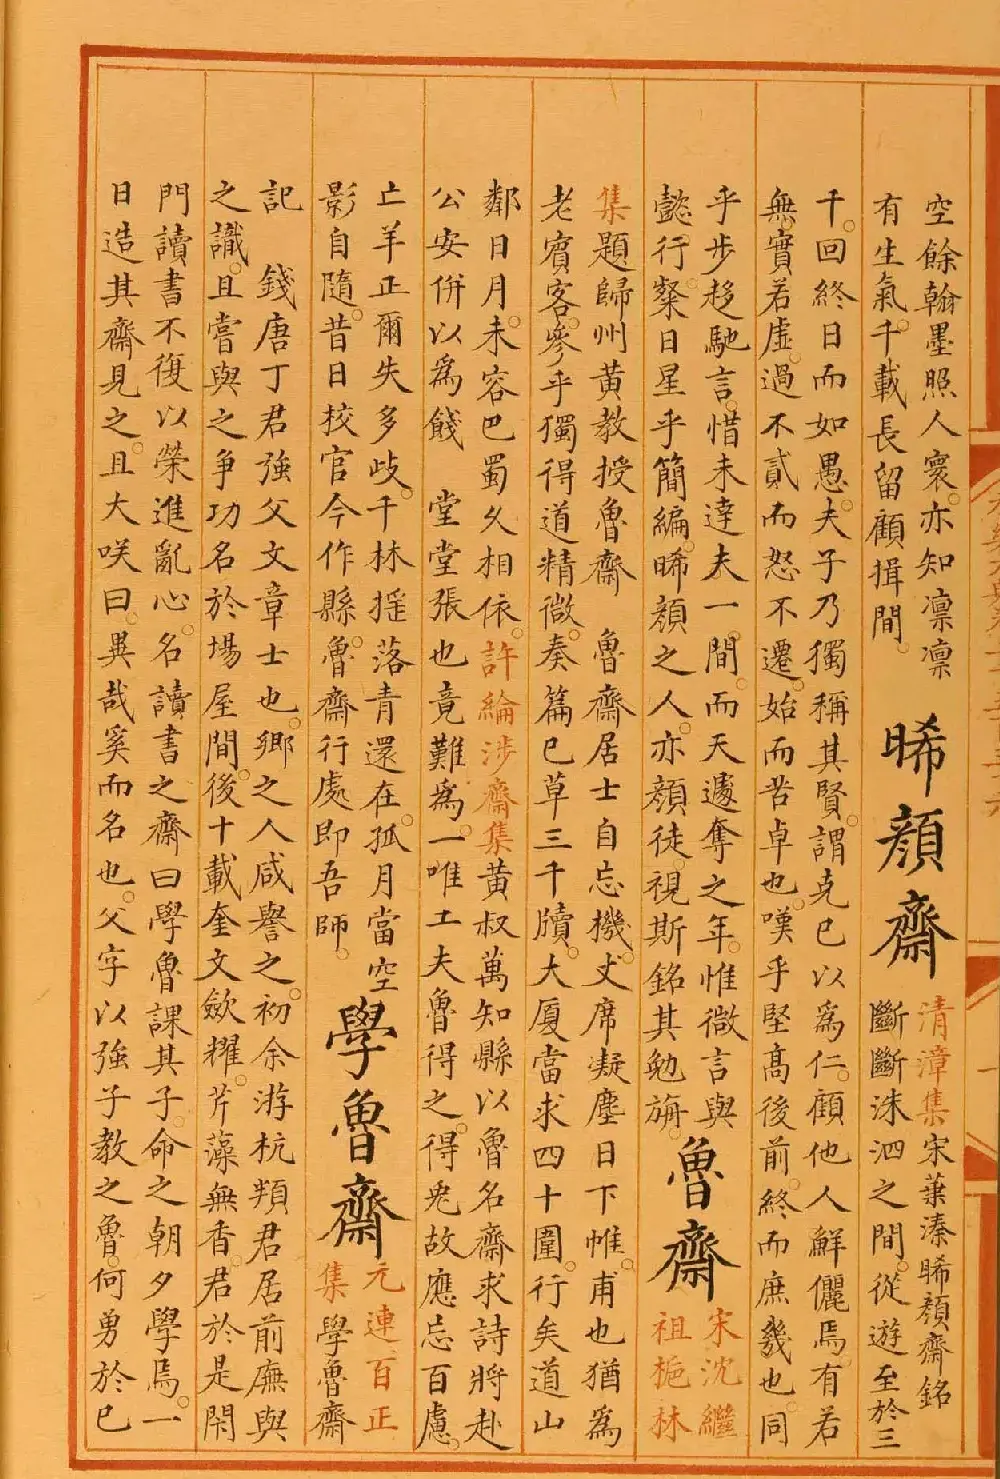 空餘翰墨照人寰。亦知凜凜
有生氣。千載長留顧揖間。
睎顏齋
清漳集宋葉溱睎顏齋銘
斷斷洙泗之間。從遊至於三
千。回終日而如愚。夫子乃獨稱其賢。謂克己以為仁。顧他人鮮儷焉。有若
無。實若虛。過不貳而怒不遷。始而苦卓也。嘆乎堅高後前。終而庶幾也。同
乎步趍馳言。惜未達夫一間。而天遽奪之年。惟微言與
懿行。粲日星乎簡編。睎顏之人。亦顏徒。視斯銘其勉旃。
魯齋
宋沈繼
祖梔林
集題歸州黃教授魯齋　魯齋居士自忘機。丈席凝塵日下帷。甫也猶為
老賓客。參乎獨得道精微。奏篇已草三千牘。大廈當求四十圍。行矣道山
鄰日月。未容巴蜀久相依。許綸涉齋集黃叔萬知縣以魯名齋求詩將赴
公安併以為餞　堂堂張也竟難為。一唯工夫魯得之。得兔故應忘百慮。
亡羊正爾失多歧。千林搖落青還在。孤月當空
影自隨。昔日校官今作縣。魯齋行處即吾師。
學魯齋
元連百正
集學魯齋
記　錢唐丁君強父文章士也。鄉之人咸譽之。初余游杭類君居前廡與
之識。且嘗與之爭功名於場屋間。後十載奎文歛耀。芹藻無香。君於是閑
門讀書不復以榮進亂心。名讀書之齋曰學魯課其子。命之朝夕學焉。一
日造其齋見之。且大咲曰。異哉奚而名也。父字以強子教之魯。何勇於己